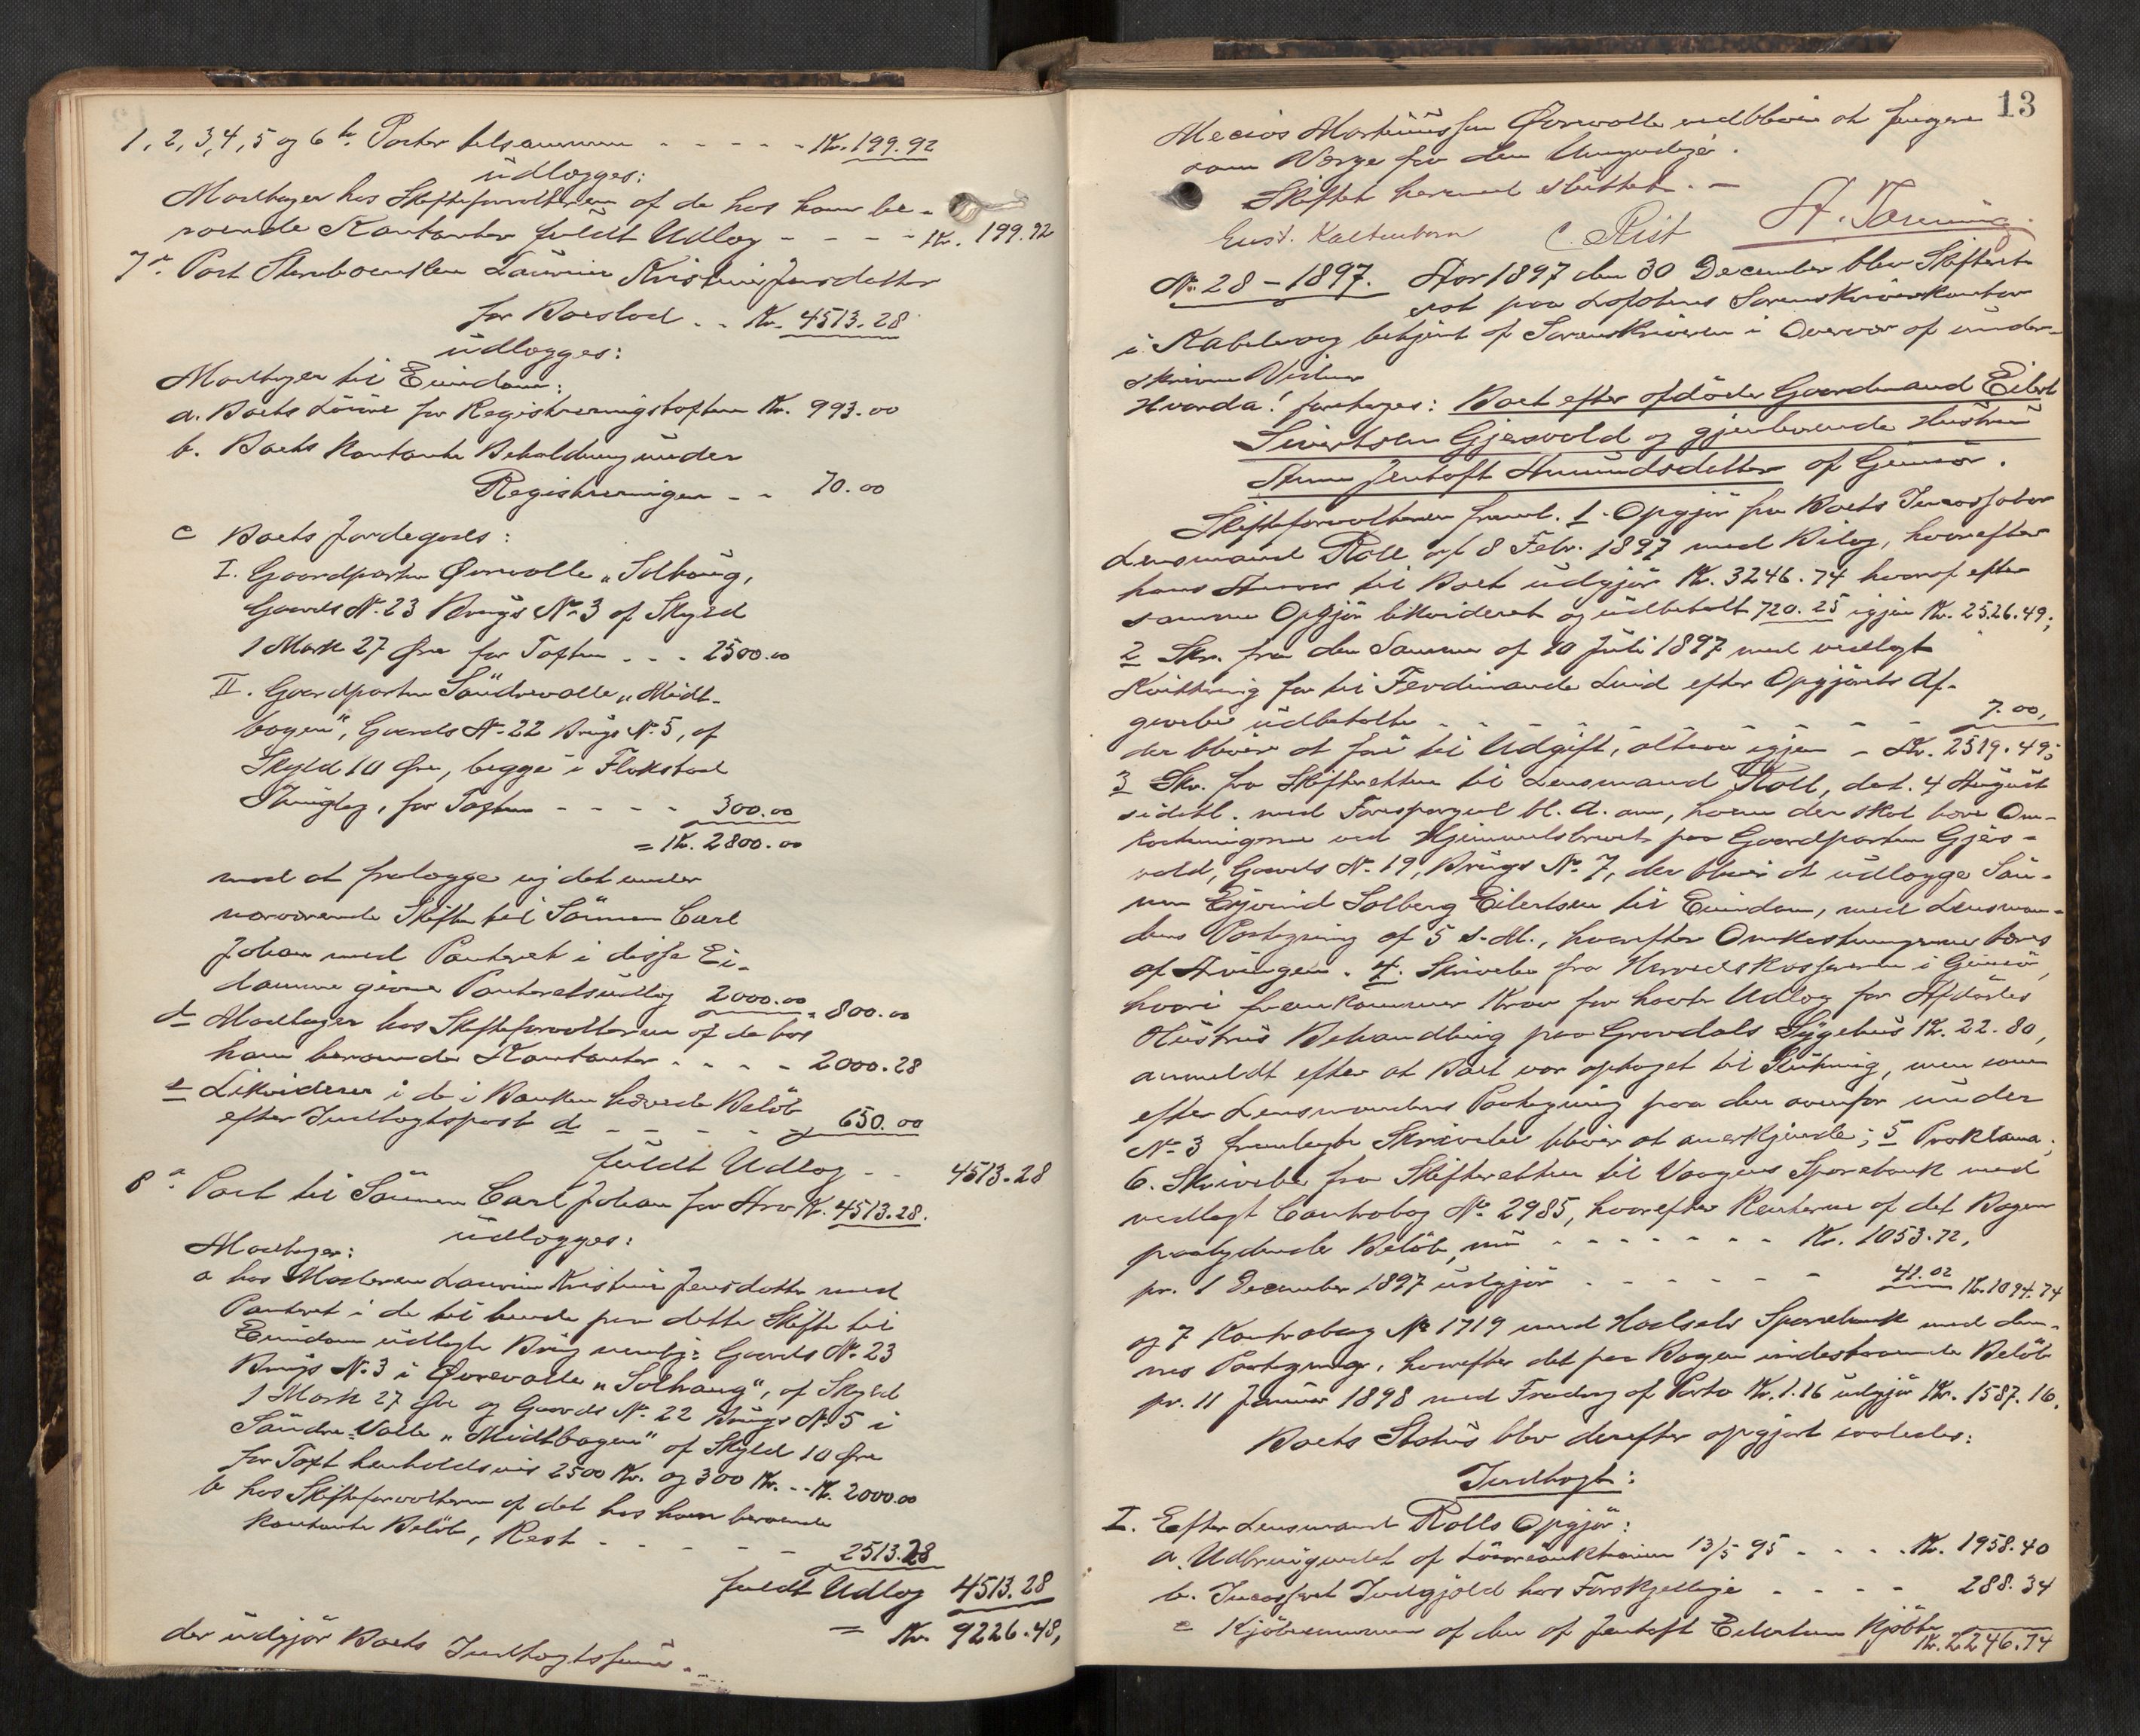 1, 2, 3, 4, 5 og 6te Poster tilsammen - - - - - Kr. 199.92
udlægges:
Modtager hos Skifteforvalteren af de hos ham be-
roende Kontanter fuldt Udlæg - - - - Kr. 199.92
7de Post Stervboenken Laurine Kristine Jensdatter
for Boeslod - - Kr. 4513.28
udlægges:
Modtager til Eiendom:
a. Boets Løsøre for Registreringstaxten Kr. 993.00
b. Boets kontante Beholdning under
Registreringen - - 70.00
c Boets Jordegods:
I. Gaardparten Øvrevalle "Solhaug,
Gaards No. 23 Brugs No. 3 af Skyld
1 Mark 27 Øre for Taxten - - - 2500.00
II. Gaardparten Søndrevalle "Midt-
bogen", Gaards No. 22 Brugs No. 5, af
Skyld 10 Øre, begge i Flakstad
Thinglag, for Taxten - - - - 300.00
= Kr. 2800.00
mod at fralægge og det under
nærværende Skifte til Sønnen Carl
Johan med Panteret i disse Ei-
domme givne Panteretsudlæg 2000.00 = 800.00
d Modtager hos Skifteforvalteren af de hos
ham beroende Kontanter - - - - 2000.28
e Likviderer i de i Banken hævede Beløb
efter Indtægtspost d - - - - - 650.00
fuldt Udlæg - - 4513.28
8de Post til Sønnen Carl Johan for Arv Kr. 4513.28.
udlægges:
Modtager:
a hos Moderen Laurine Kristine Jensdatter med
Panteret i de til hende paa dette Skifte til
Eiendom udlagte Brug nemlig: Gaards No. 23
Brugs No. 3 i Øvrevalle "Solhaug", af Skyld
1 Mark 27 Øre og Gaards No. 22 Brugs No. 5 i
Søndre-Valle "Midtbogen" af Skyld 10 Øre
for Taxt henholdsvis 2500 Kr. og 300 Kr. - - Kr. 2000.00
b hos Skifteforvalteren af det hos ham beroende
kontante Beløb, Rest - - - - - 2513.28
fuldt Udlæg 4513.28
= Kr. 9226.48,
der udgjør Boets Indtægtssum.
13
Mecios Martinussen Øvrevalle vedbliver at fungere
som Værge for den Umyndige.
Skiftet hermed sluttet. -
A. Tønning
Gust. Kaltenborn C. Rist
No. 28 - 1897. Aar 1897 den 30 December blev Skifteret-
ret paa Lofotens Sorenskriverkontor
i Kabelvaag betjent af Sorenskriveren i Overvær af under-
skrevne Vidner
Hvorda! foretoges: Boet efter afdøde Gaardmand Eilert
Sivertsen Gjersvold og gjenlevende Hustru
Anne Jentoft Amundsdatter af Gimsø.
Skifteforvalteren freml. 1. Opgjør fra Boets Incassator
Lensmand Roll af 8 Febr. 1897 med Bilag, hvorefter
hans Ansvar til Boet udgjør Kr. 3246.74 hvoraf efter
samme Opgjør likvideret og udbetalt 720.25 igjen Kr. 2526.49;
2 Skr. fra den Samme af 10 Juli 1897 med vedlagt
Kvittering for til Ferdinande Lind efter Opgjørets Af-
givelse udbetalte - - - - - - - - - 7.00,
der bliver at føre til Udgift, altsaa igjen - Kr. 2519.49;
3 Skr. fra Skifteretten til Lensmand Roll, dat. 4 August
sidstl. med Forespørgsel bl. A. om, hvem der skal bære Om-
kostningerne ved Hjemmelsbrevet paa Gaardparten Gjers-
vold, Gaards No. 19, Brugs No. 7, der bliver at udlægge Søn-
nen Ejvind Solberg Eilertsen til Eiendom, med Lensman-
dens Paategning af 5 s. M., hvorefter Omkostningerne bæres
af Arvingen. 4. Skrivelse fra Herredskassereren i Gimsø,
hvori fremkommer Krav for havte Udlæg for Afdødes
Hustrus Behandling paa Gravdals Sygehus Kr. 22.80,
anmeldt efter at Boet var optaget til Slutning, men som
efter Lensmandens Paategning paa den ovenfor under
No. 3 fremlagte Skrivelse bliver at anerkjende; 5 Proklama;
6. Skrivelse fra Skifteretten til Vaagens Sparebank med
vedlagt Contrabog No. 2985, hvorefter Renterne af det Bogen
paalydende Beløb, nu - - - - - - - Kr. 1053.72,
pr. 1 December 1897 udgjør - - - - - - 41.02 Kr. 1094.74
og 7 Kontrabog No 1719 med Hadsels Sparebank med den-
nes Paategning, hvorefter det paa Bogen indestaaende Beløb
pr. 11 Januar 1898 med Fradrag af Porto Kr. 1.16 udgjør Kr. 1587.16.
Boets Status blev derefter opgjort saaledes:
Indtægt:
I. Efter Lensmand Rolls Opgjør:
a. Udbringendet af Løsøreauktionen 13/5 95 - - - - Kr. 1958.40
b. Incasseret Indgjæld hos Forskjellige - - - - 288.34
c Kjøbesummen af den af Jentoft Eilertsen kjøbte
Kr. 2246.74